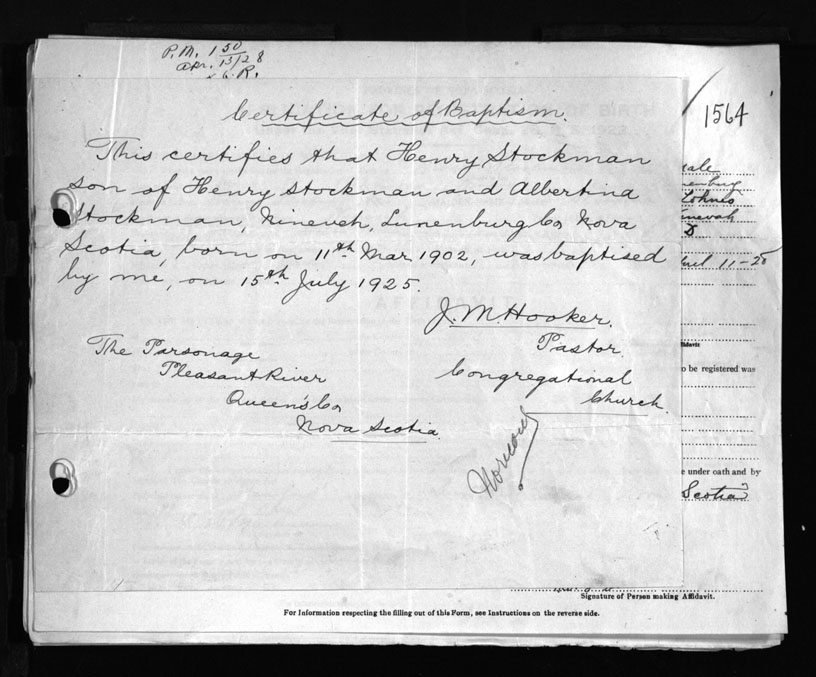 P.M. 1 50
Apr. 13/28
1564
Certificate of Baptism.
This certifies that Henry Stockman
son of Henry Stockman and Albertina
Stockman, Nineveh, Lunenburg Co Nova
Scotia, born on 11th Mar 1902, was baptised
by me, on 15th July 1925.
J. M. Hooker.
Pastor.
Congregational
Church.
The Parsonage
Pleasant River
Queen's Co
Nova Scotia.
11-25
fidavit
o be registered was
e under oath and by
Scotia
Signature of Person making Affidavit.
For Information respecting the filling out of this Form, see Instructions on the reverse side.